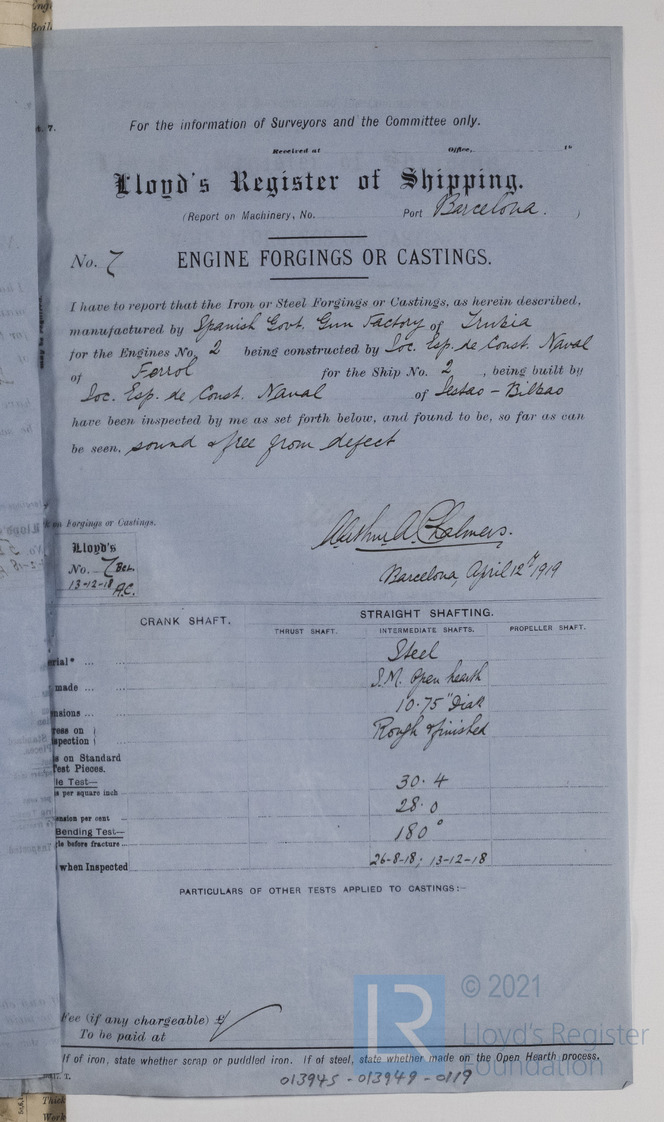 For the information of Surveyors and the Committee only.
Received at Office, 19
Lloyd's Register of Shipping.
(Report on Machinery, No. Port Barcelona. )
No. 7 ENGINE FORGINGS OR CASTINGS.
I have to report that the Iron or Steel Forgings or Castings, as herein described,
manufactured by Spanish Govt. Gun Factory of Trubia
for the Engines No. 2 being constructed by Soc. Esp. de Const. Naval
of Ferrol for the Ship No. 2, being built by
Soc. Esp. de Const. Naval of Sestao - Bilbao
have been inspected by me as set forth below, and found to be, so far as can
be seen, sound & free from defect
on Forgings or Castings.
Lloyd's
No. 7 Bcn.
13-12-18 A.C.
Arthur A. Chalmers.
Barcelona, April 12th 1919
CRANK SHAFT. STRAIGHT SHAFTING.
THRUST SHAFT. INTERMEDIATE SHAFTS. PROPELLER SHAFT.
erial* ... Steel
made ... S.M. Open hearth
nsions ... 10.75" Diar
ress on
spection Rough & finished
s on Standard
Test Pieces.
le Test— 30.4
s per square inch
28.0
ension per cent
Bending Test— 180°
gle before fracture ...
when Inspected 26-8-18; 13-12-18
PARTICULARS OF OTHER TESTS APPLIED TO CASTINGS:—
Fee (if any chargeable) £
To be paid at
If of iron, state whether scrap or puddled iron. If of steel, state whether made on the Open Hearth process.
013945-013949-0119
© 2021
Lloyd's Register
Foundation
Thick
Work